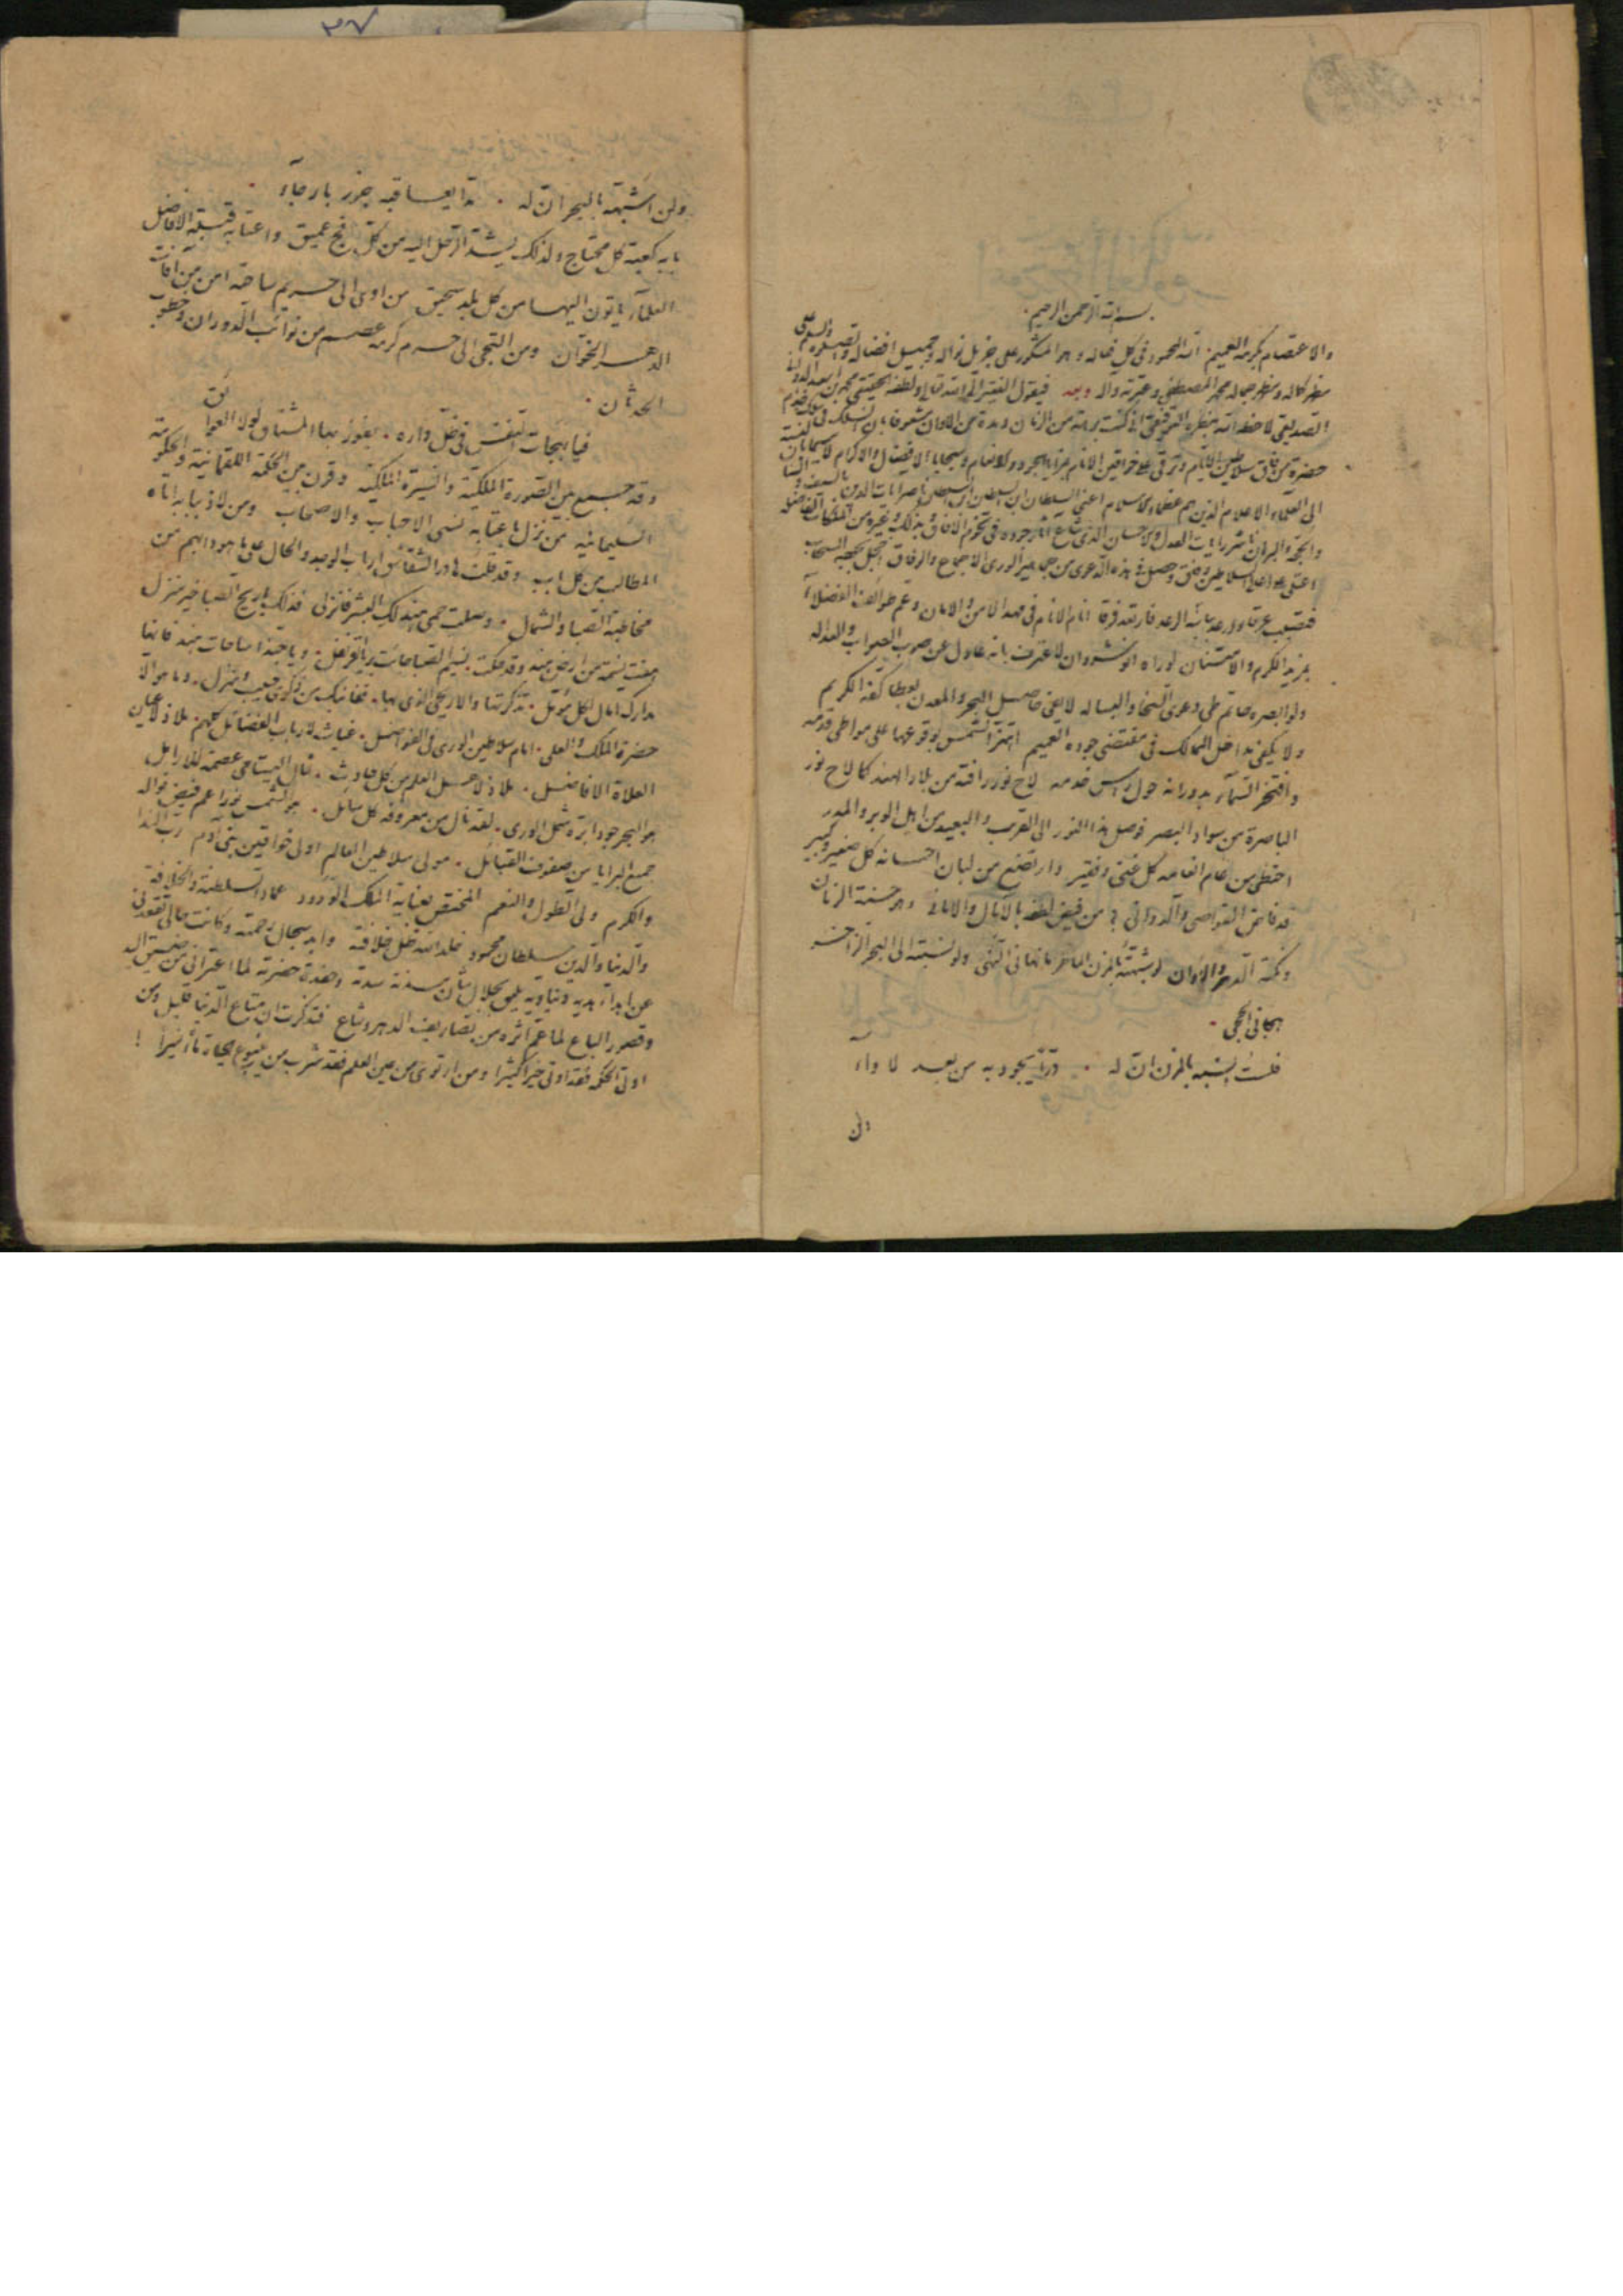 بسم الله الرحمن الرحيم
والاعتصام بكرمه العميم. انه المحمود في كل فعاله وهو المشكور على جزيل نواله وجميل افضاله والصلوة والسلم على
مظهر كماله ومنظر جماله محمد المصطفى وعترته وآله وبعد فيقول الفقير الى الله تعالى ولطفه الحقيقي محمد بن اسعد الدواني
الصديقي لاحظه الله بنظره التوفيقي اني كنت برهة من الزمان ومدة من الاوان مشعوفا بان انسلك في سلك خدم
حضرة من فاق سلاطين الايام وترقى على خواقين الانام بمزايا الجود والانعام وسجايا الافضال والاكرام لاسيما بالنسبة
الى العلماء الاعلام الذين هم عظماء الاسلام اعني السلطان ابن السلطان ابن السلطان ناصر رايات الدين بالسيف والسنان
والحجة والبرهان ناشر رايات العدل والاحسان الذي شاع آثار جوده في تخوم الآفاق
اعتلى على اعاظم السلاطين وفاق وحصل هذه الدعوى من جماهير الورى الاجماع والوفاق اخجل بجوده السحاب
فتصبب عرقا ورعد بأسه الرعد فارتعد فرقا انام الانام في مهد الامن والامان وعم طوائف الفضلاء
بمزيد الكرم والامتنان لو رآه انوشروان لاعترف بانه عادل عن صوب الصواب والعداله
ولو ابصره حاتم طي دعوى السخا والبساله لا يفي حاصل البحر والمعدن بعطاء كفه الكريم
ولا يكفي مداخل الممالك في مقتضى جوده العميم اهتز الشمس بوقوعها على مواطي قدمه
وافتخر السماء بدورانه حول راس خدمه لاح نور رافته من بلاد الهند كما لاح نور
الباصرة من سواد البصر فوصل هذا النور الى القريب والبعيد من اهل الوبر والمدر
احتظى من عام انعامه كل غني وفقير وارتضع من لبان احسانه كل صغير وكبير
قد فاض القواصي والدواني من فيض لطفه بالآمال والاماني وهو حسنة الزمان
ومكرمة الدهر والاوان لو شبهته بالمزن الماطر نهاني النهى ولو نسبته الى البحر الزاخر
هجاني الحجى
فلست اشبهه بالمزن ان له . قرا يجود به من بعد لاواء
ولن
ولن اشبهه بالبحر ان له . مدا يعاقبه جزر بارجاء
بابه كعبة كل محتاج ولذلك يشد الرحل اليه من كل فج عميق واعتابه قبلة الافاضل
العلماء ياتون اليها من كل بلد سحيق من اوى الى حريم ساحته امن من آفات
الدهر الخوان ومن التجى الى حرم كرمه عصم من نوائب الدوران وخطوب
الحدثان .
فيا بهجات النفس في ظل داره . يفوز بها المشتاق لولا العوائق
وقد جمع بين الصورة الملكية والسيرة الملكية وقرن بين الحكمة اللقمانية والحكومة
السليمانية من نزل باعتابه نسى الاحباب والاصحاب ومن لاذ ببابه اتاه
المطالب من كل باب وقد قلت كما هو دابهم من
مخاطبة الصبا والشمال . وصلت حمى هند لك البشر فانزل فذلك يا ريح الصبا خير منزل
مدارك آمال لكل مؤمل . تذكرتها قفا نبك من ذكرى حبيب ومنزل . وما هو الا
حضرة الملك والعلى . امام سلاطين الورى في الفواضل . غياث لارباب الفضائل كلهم ملاذ لاعيان
العلاة الافاضل . ملاذ لاهل العلم من كل حادث . ثمال اليتامى عصمة للارامل
هو البحر جودا بره شمل الورى . لقد نال من معروفه كل سائل . هو الشمس نورا عم فيض نواله
جميع البرايا من صفوف القبائل . مولى سلاطين العالم اولى خواقين بني آدم رب الندا
والكرم ولي الطول والنعم المختص بعناية الملك الودود عماد السلطنة والخلافة
والدنيا والدين سلطان محمود خلد الله ظل خلافته وابد سجال رحمته وكانت حالي تقعدني
عن اهداء هدية دنياوية يليق بجلال شان سدنة سدته وحفدة حضرته لما اعتراني من ضيق اليد
وقصور الباع لما عم اثره من تصاريف الدهر وشاع فتذكرت ان متاع الدنيا قليل ومن
اوتي الحكمة فقد اوتي خيرا كثيرا ومن ارتوى من عين العلم فقد شرب من ينبوع الحياة ماء نميرا